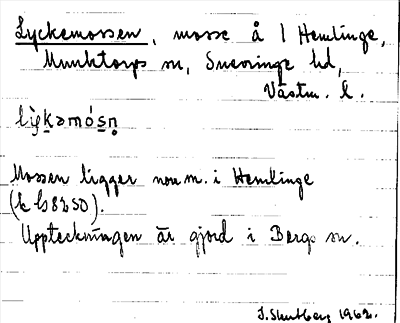 Lyckemossen, mosse å 1 Hemlinge,
Munktorps sn, Snevringe hd,
Västm. l.
Mossen ligger nom. i Hemlinge
(k b8250).
Uppteckningen är gjord i Bergs sn.
1962.